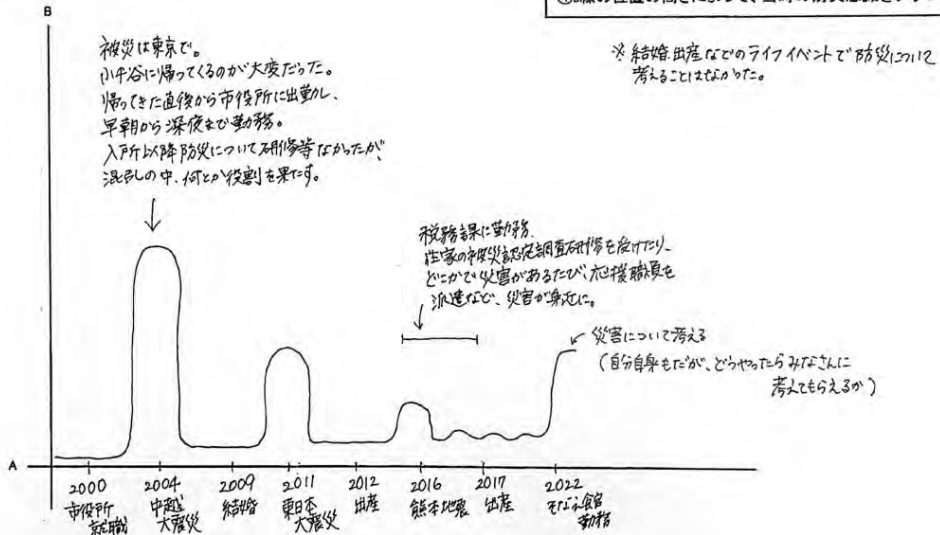 B
被災は東京で。
小千谷に帰ってくるのが大変だった。
帰ってきた直後から市役所に出勤し、
早朝から深夜まで勤務。
入所以降防災について研修等なかったが、
混乱の中、何とか役割を果たす。
※ 結婚、出産などのライフイベントで防災について
考えることはなかった。
税務課に勤務。
住家の被災認定調査研修を受けたり、
どこかで災害があるたび、応援職員を
派遣など、災害が身近に。
災害について考える
(自分自身もだが、どうやったらみなさんに
考えてもらえるか)
A
2000
市役所
就職
2004
中越
大震災
2009
結婚
2011
東日本
大震災
2012
出産
2016
熊本地震
2017
出産
2022
そなえ館
勤務